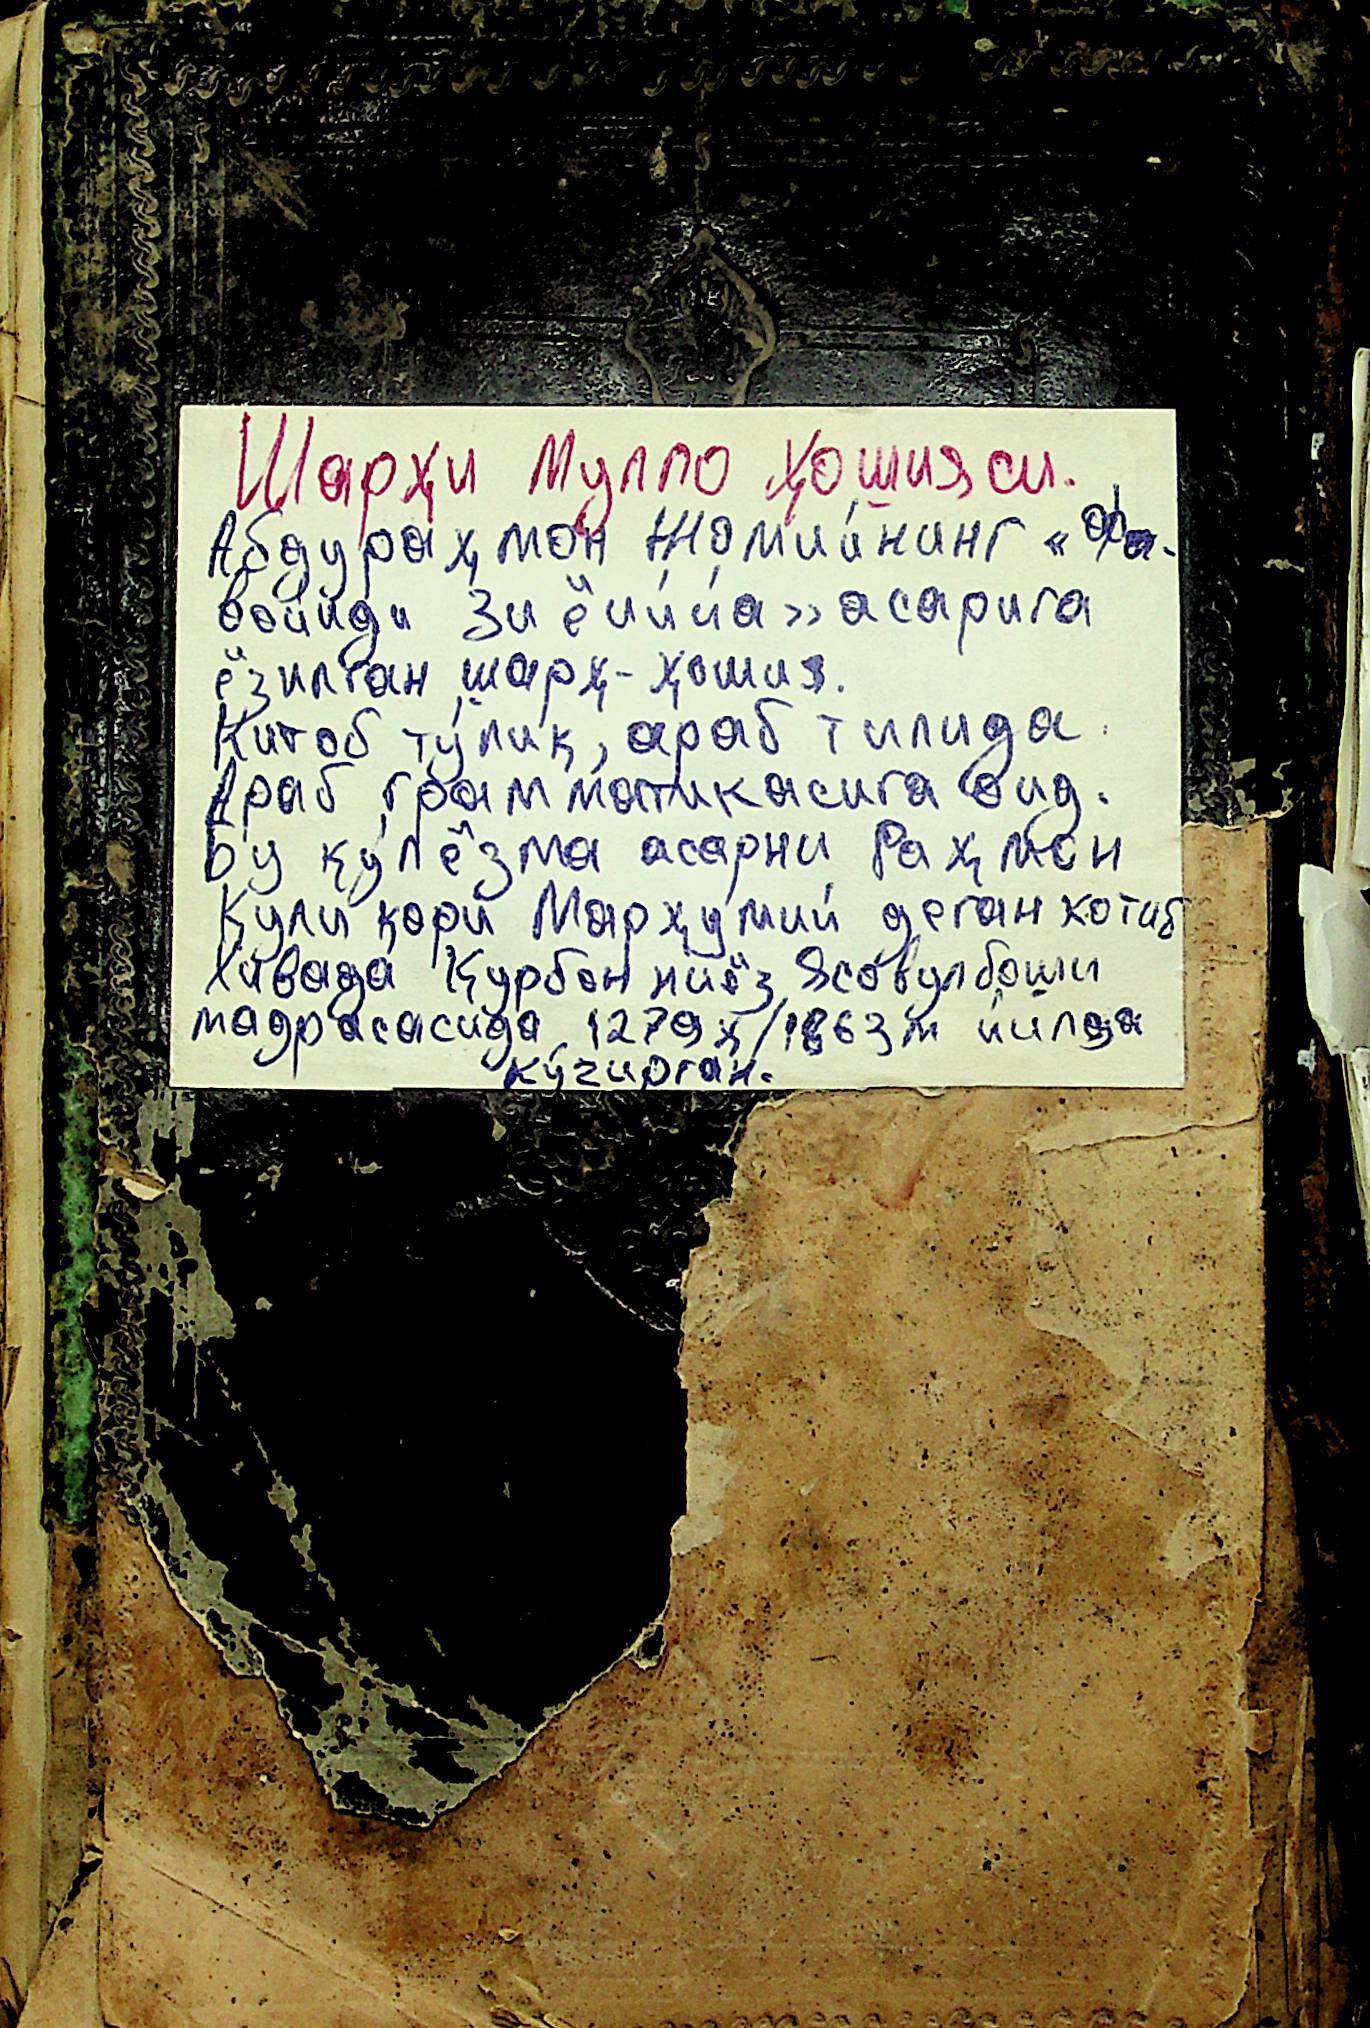 Шарҳи Мулло ҳошияси.
Абдураҳмон Жомийнинг «Фа-
войиди Зиёиййа» асарига
ёзилган шарҳ-ҳошия.
Китоб тўлиқ, араб тилида.
Араб грамматикасига оид.
Бу қўлёзма асарни Раҳмон
Қули қори Марҳумий деган котиб
Хивада Қурбон ниёз Ясовулбоши
мадрасасида 1279ҳ/1863м йилда
кўчирган.